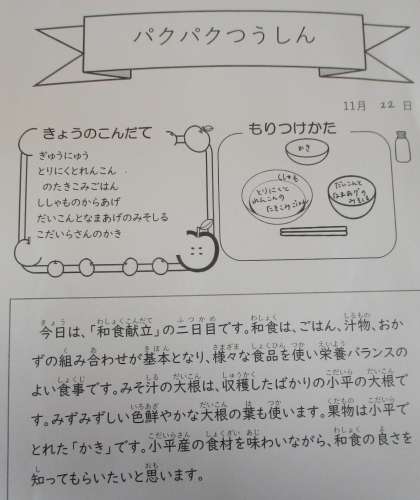 パクパクつうしん
11月 22 日
きょうのこんだて
ぎゅうにゅう
とりにくとれんこん
のたきこみごはん
ししゃものからあげ
だいこんとなまあげのみそしる
こだいらさんのかき
もりつけかた
かき
ししゃも
とりにくと
れんこんの
たきこみごはん
だいこんと
なまあげの
みそしる
今日は、「和食献立」の二日目です。和食は、ごはん、汁物、おか
ずの組み合わせが基本となり、様々な食品を使い栄養バランスの
よい食事です。みそ汁の大根は、収穫したばかりの小平の大根で
す。みずみずしい色鮮やかな大根の葉も使います。果物は小平で
とれた「かき」です。小平産の食材を味わいながら、和食の良さを
知ってもらいたいと思います。